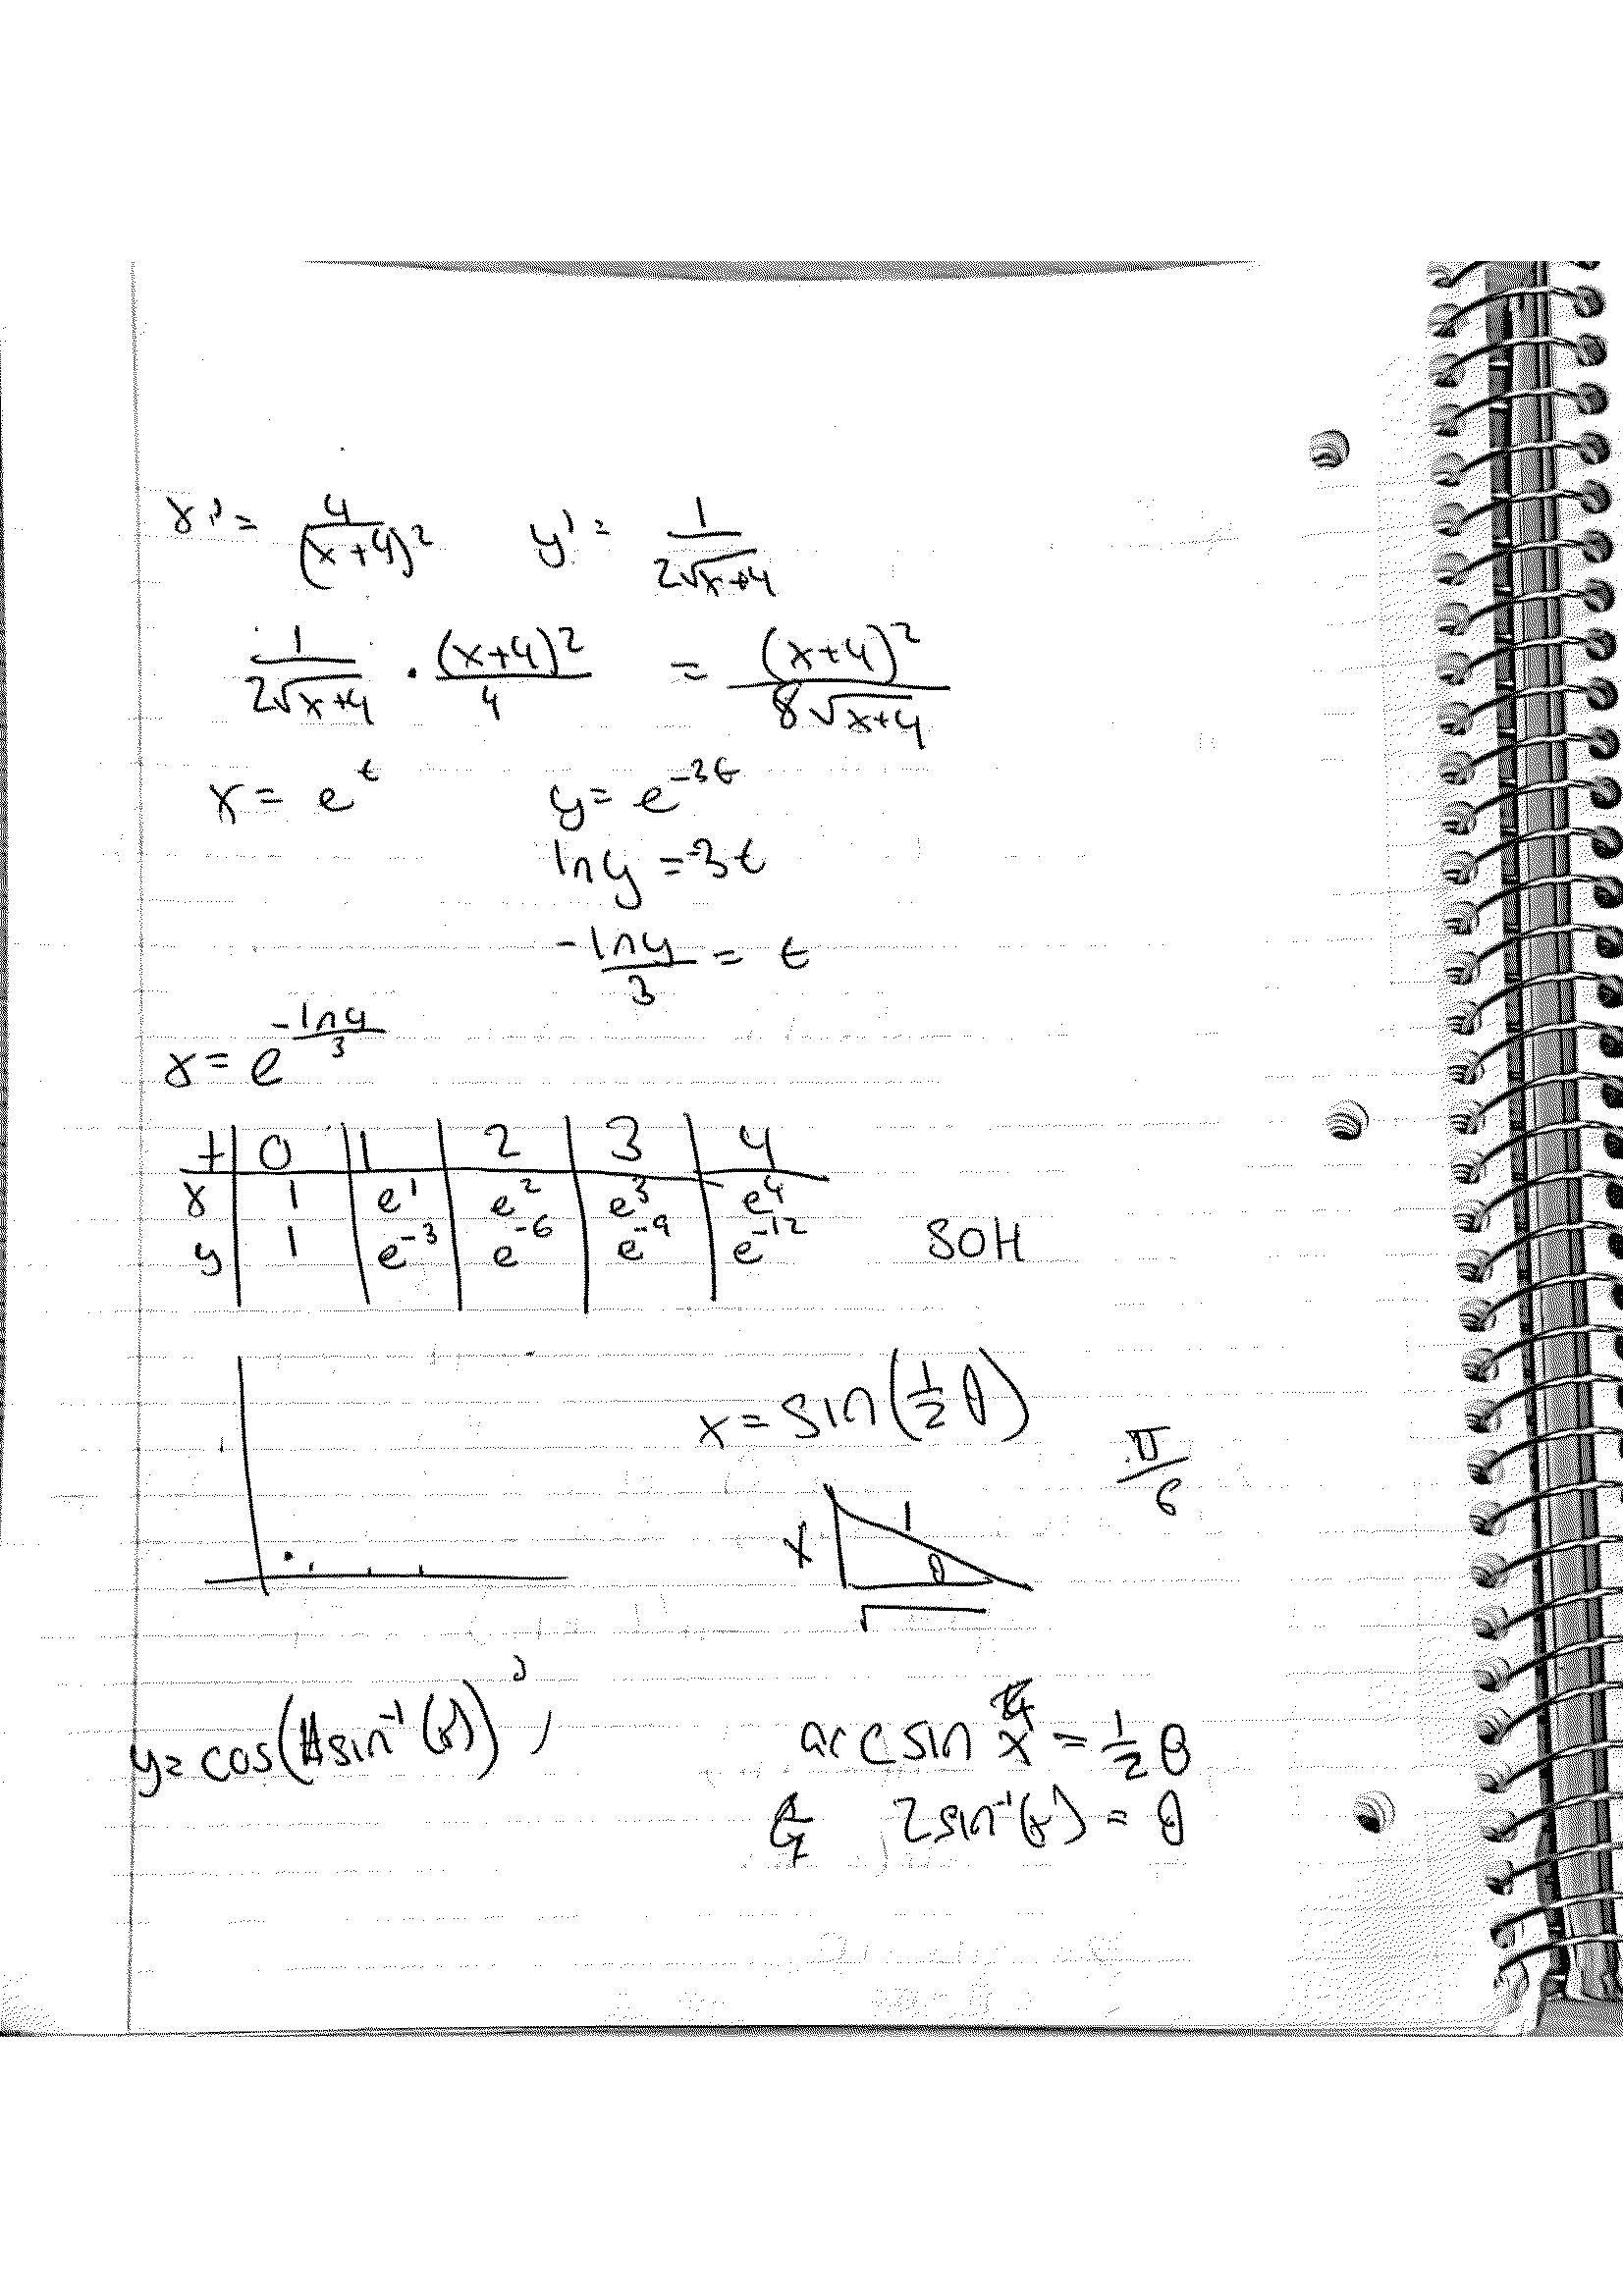 x' = 4/(x+4)² y' = 1/(2√(x+4))
1/(2√(x+4)) · (x+4)²/4 = (x+4)²/(8√(x+4))
x = e^t y = e^(-3t)
ln y = -3t
-ln y/3 = t
x = e^(-ln y/3)
t | 0 | 1 | 2 | 3 | 4
x | 1 | e^1 | e^2 | e^3 | e^4
y | 1 | e^-3 | e^-6 | e^-9 | e^-12
SOH
x = sin(1/2 θ)
π/6
x 1 θ √
y = cos( sin⁻¹(x))
arcsin x = 1/2 θ
2sin⁻¹(x) = θ